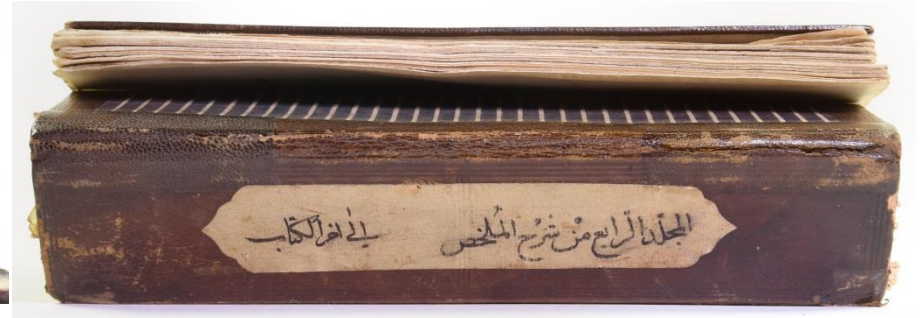 المجلد الرابع من شرح الملخص إلى آخر الكتاب